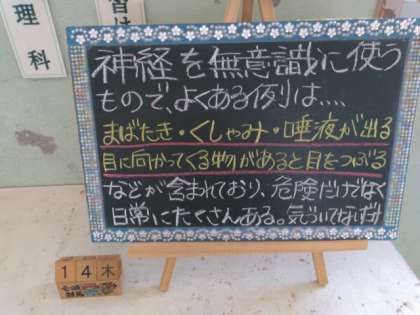 理科
習
神経を無意識に使う
もので、よくある例は....
まばたき・くしゃみ・唾液が出る
目に向かってくる物があると目をつぶる
などが含まれており、危険だけでなく
日常にたくさんある。気づいてないだけ
14木